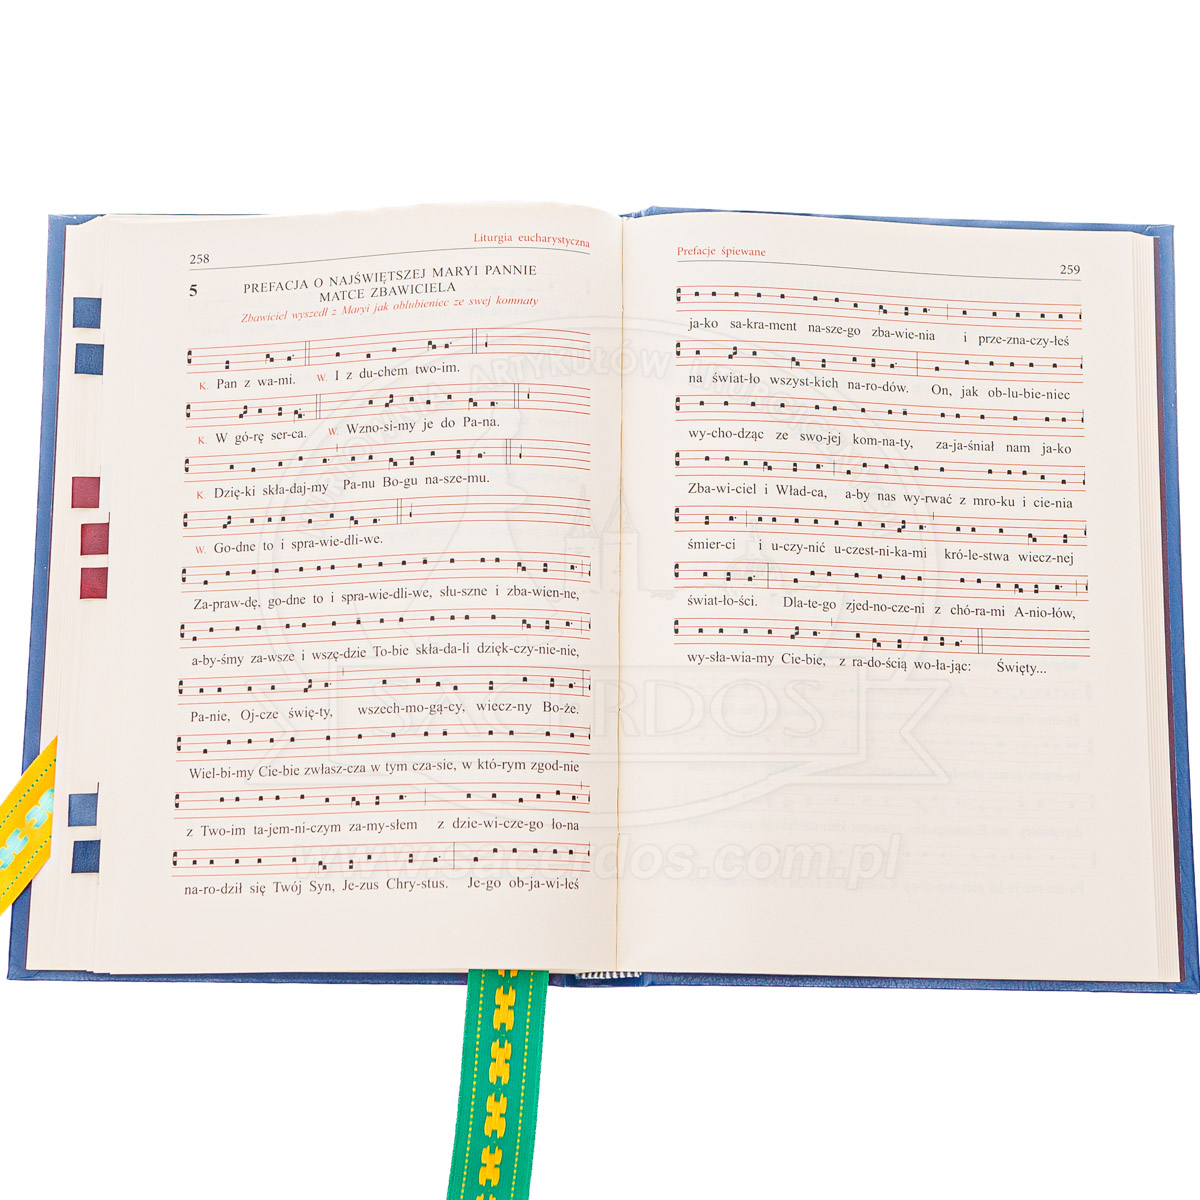 258
Liturgia eucharystyczna
5
PREFACJA O NAJŚWIĘTSZEJ MARYI PANNIE
MATCE ZBAWICIELA
Zbawiciel wyszedł z Maryi jak oblubieniec ze swej komnaty
K. Pan z wa-mi. W. I z du-chem two-im.
K. W gó-rę ser-ca. W. Wzno-si-my je do Pa-na.
K. Dzię-ki skła-daj-my Pa-nu Bo-gu na-sze-mu.
W. Go-dne to i spra-wie-dli-we.
Za-praw-dę, go-dne to i spra-wie-dli-we, słu-szne i zba-wien-ne,
a-by-śmy za-wsze i wszę-dzie To-bie skła-da-li dzięk-czy-nie-nie,
Pa-nie, Oj-cze świę-ty, wszech-mo-gą-cy, wiecz-ny Bo-że.
Wiel-bi-my Cie-bie zwłasz-cza w tym cza-sie, w któ-rym zgod-nie
z Two-im ta-jem-ni-czym za-my-słem z dzie-wi-cze-go ło-na
na-ro-dził się Twój Syn, Je-zus Chry-stus. Je-go ob-ja-wi-łeś
Prefacje śpiewane
259
ja-ko sa-kra-ment na-sze-go zba-wie-nia i prze-zna-czy-łeś
na świat-ło wszyst-kich na-ro-dów. On, jak ob-lu-bie-niec
wy-cho-dząc ze swo-jej kom-na-ty, za-ja-śniał nam ja-ko
Zba-wi-ciel i Wład-ca, a-by nas wy-rwać z mro-ku i cie-nia
śmier-ci i u-czy-nić u-czest-ni-ka-mi kró-le-stwa wiecz-nej
świat-ło-ści. Dla-te-go zjed-no-cze-ni z chó-ra-mi A-nio-łów,
wy-sła-wia-my Cie-bie, z ra-do-ścią wo-ła-jąc: Święty...
SACERDOS
www.sacerdos.com.pl